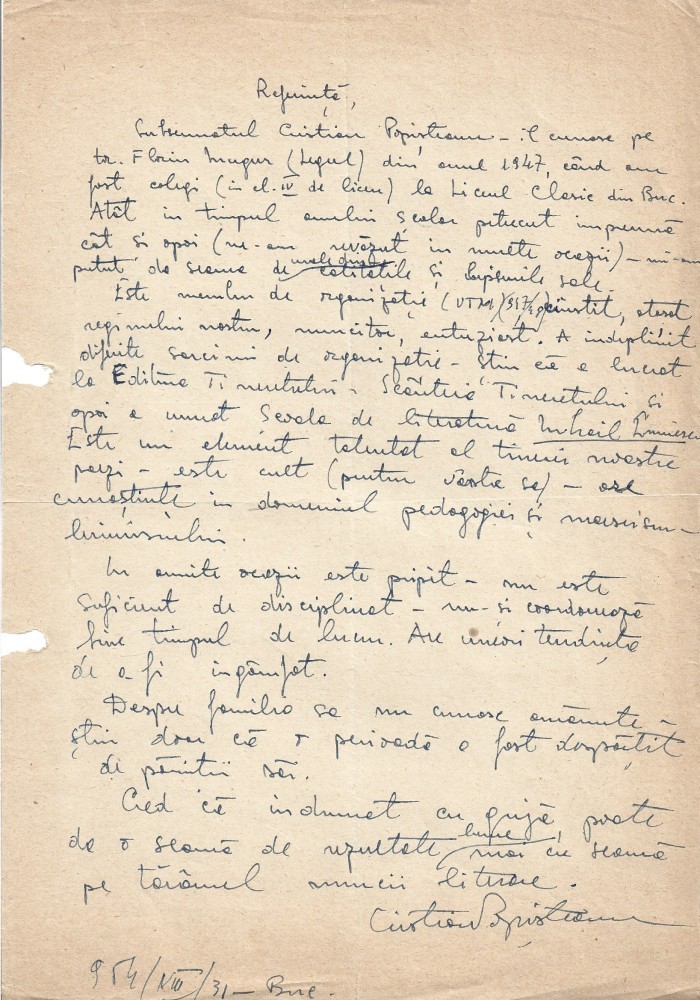 Referință,
Subsemnatul Cristian Popișteanu – îl cunosc pe
tov. Florin Mugur (Legrel) din anul 1947, când am
fost colegi (în cl. IV de liceu) la Liceul Clasic din Buc.
Atât în timpul anului școlar petrecut împreună
cât și apoi (ne-am revăzut în multe ocazii) – mi-am
putut da seama de calitățile și lipsurile sale.
Este membru de organizație (UTM) cinstit, atașat
regimului nostru, muncitor, entuziast. A îndeplinit
diferite sarcini de organizație – știu că a lucrat
la Editura Tineretului – Scânteia Tineretului și
apoi a urmat Școala de literatură Mihail Eminescu
Este un element talentat al tinerei noastre
poezii – este cult (pentru vârsta sa) – are
cunoștințe în domeniul pedagogiei și marxism-
leninismului.
În anumite ocazii este pripit – nu este
suficient de disciplinat – nu-și coordonează
bine timpul de lucru. Are uneori tendința
de a fi îngâmfat.
Despre familia sa nu cunosc amănunte –
știu doar că o perioadă a fost despărțit
de părinții săi.
Cred că îndrumat cu grijă poate
da o seamă de rezultate bune mai cu seamă
pe tărâmul muncii literare.
Cristian Popișteanu
954/VIII/31 – Buc.